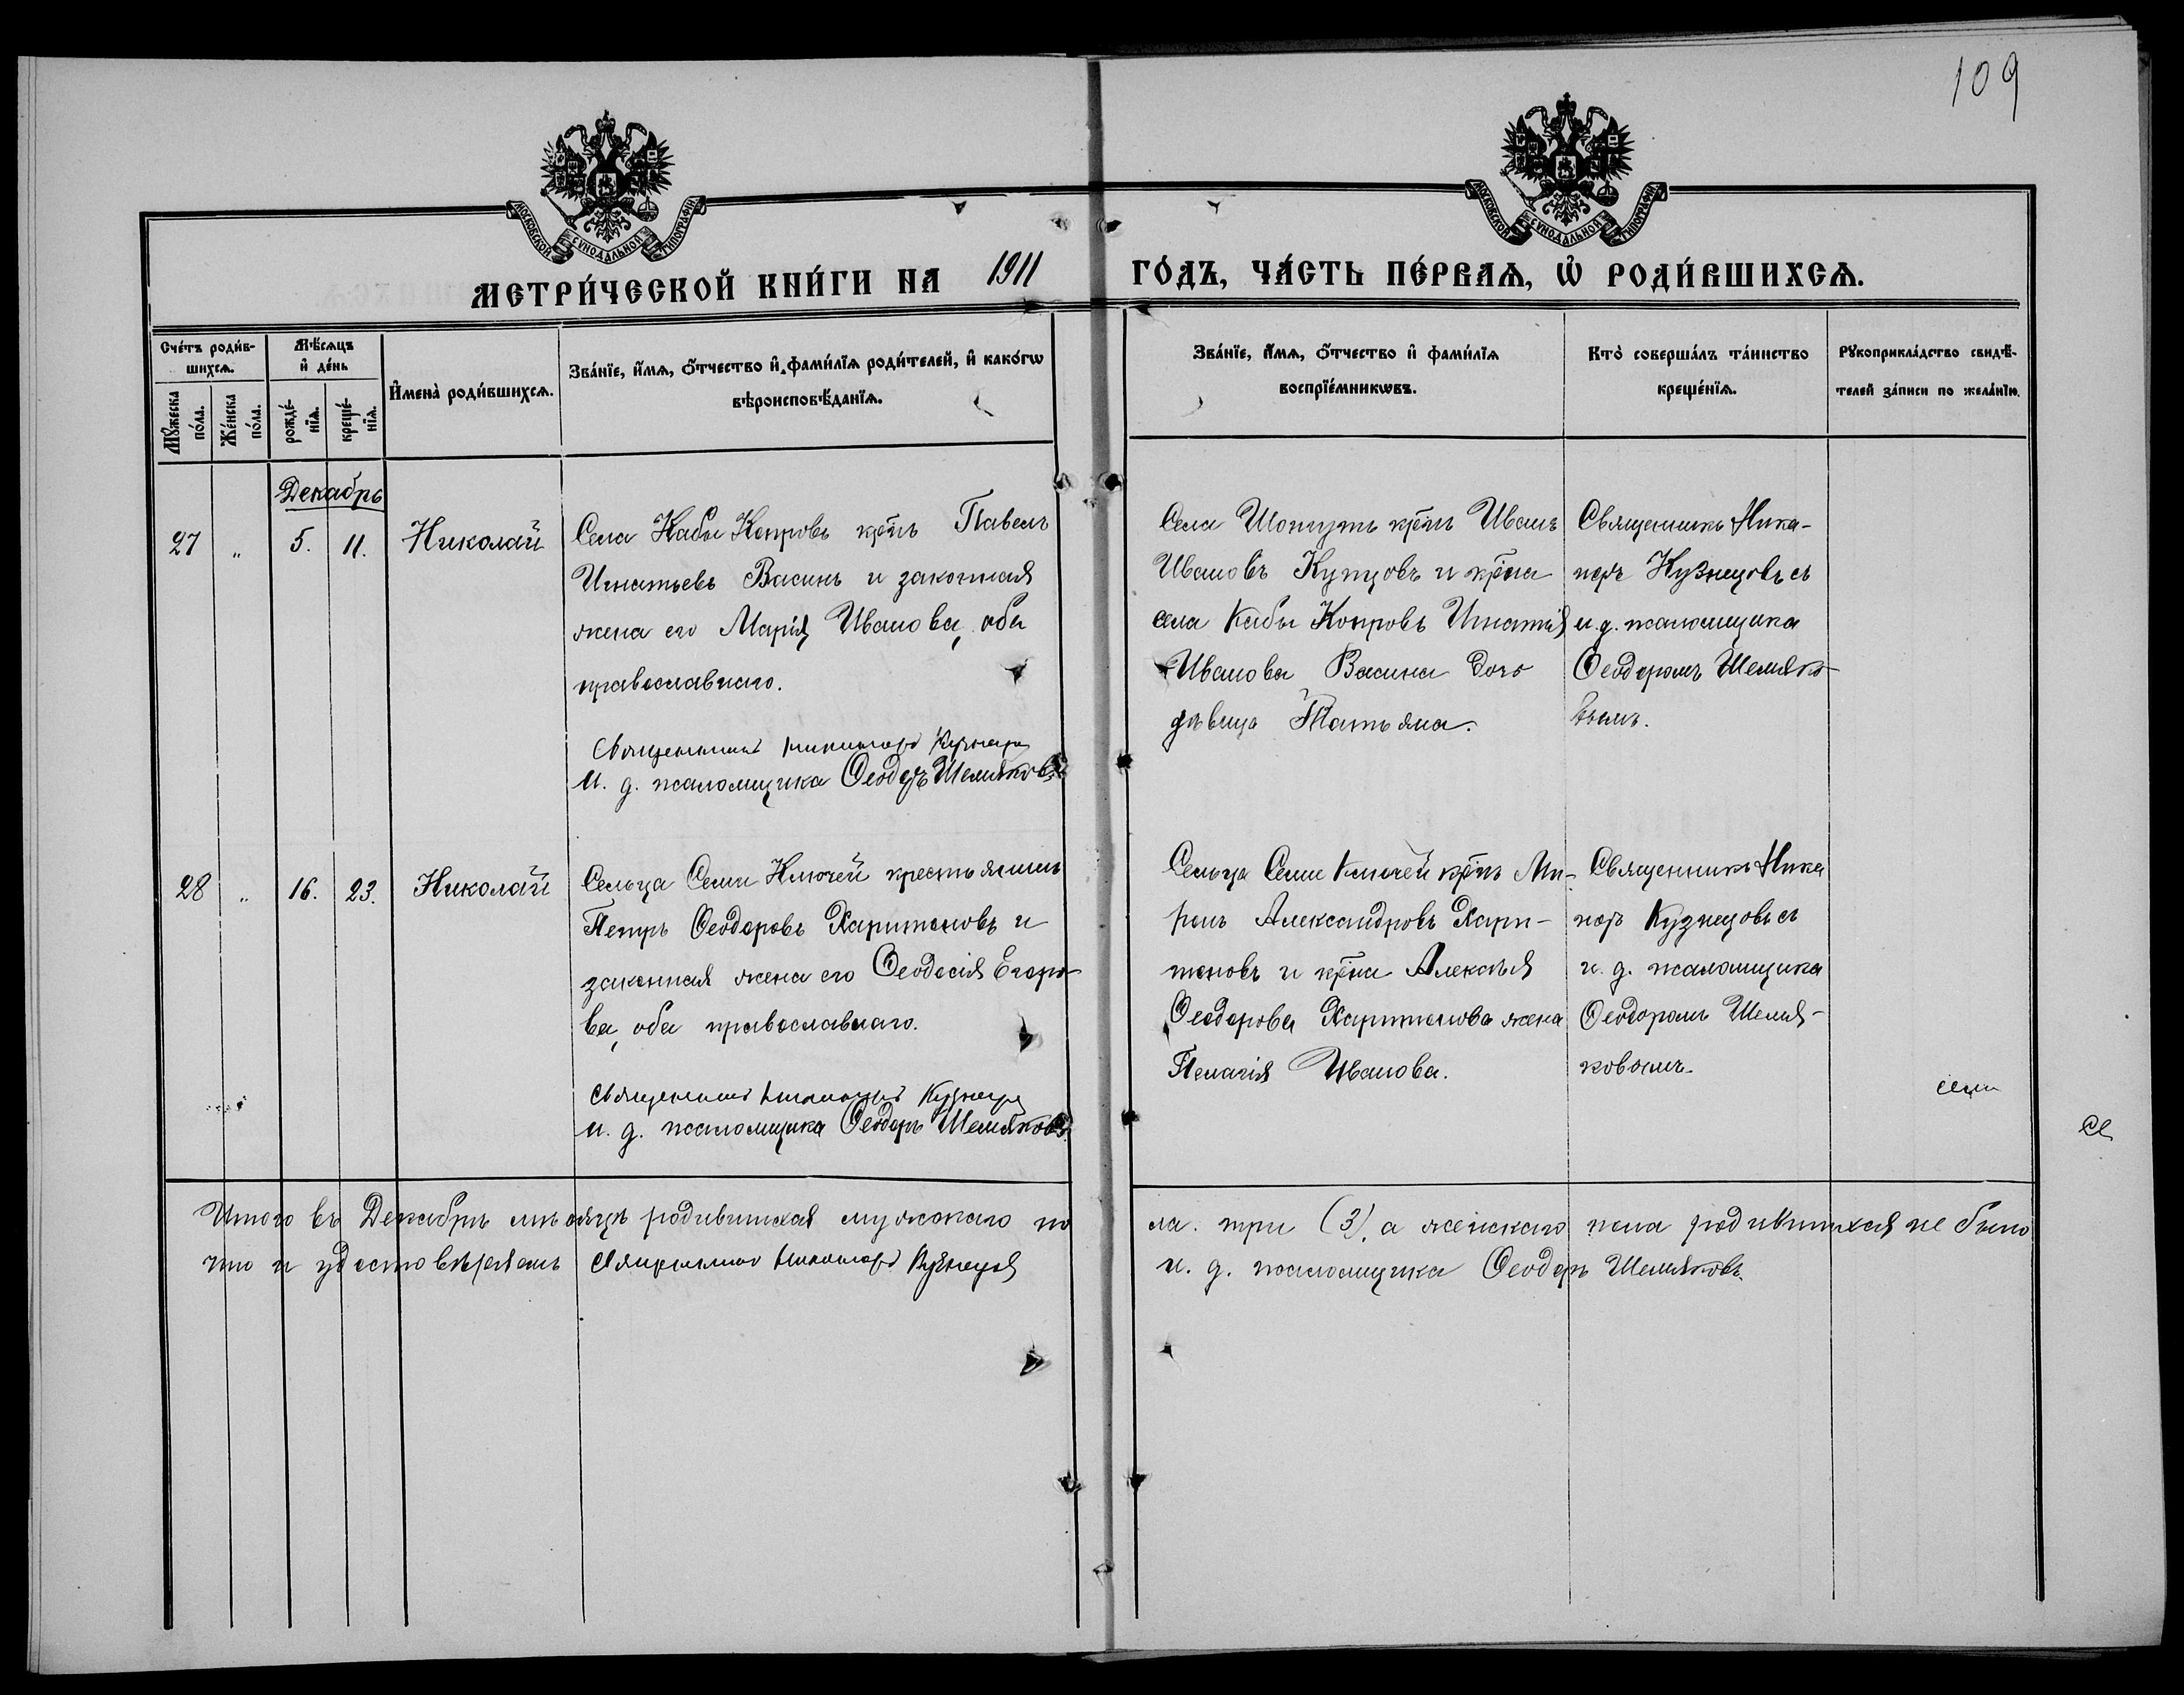 109
МОСКОВСКОЙ СУНОДАЛЬНОЙ ТИПОГРАФІИ
МОСКОВСКОЙ СУНОДАЛЬНОЙ ТИПОГРАФІИ
МЕТРИ́ЧЕСКОЙ КНИ́ГИ НА 1911 ГО́ДЪ, ЧА́СТЬ ПЕ́РВАѦ, Ѡ҆ РОДИ́ВШИХСѦ.
Сче́тъ роди́в-
шихсѧ.
Мꙋ́жеска
по́ла.
Же́нска
по́ла.
Мѣ́сѧцъ
и҆ де́нь
рожде́-
нїѧ.
креще́-
нїѧ.
И҆мена̀ роди́вшихсѧ.
Зва́нїе, и҆́мѧ, ѻ҆́тчество и҆ фами́лїѧ роди́телей, и҆ како́гѡ
вѣроисповѣ́данїѧ.
Зва́нїе, и҆́мѧ, ѻ҆́тчество и҆ фами́лїѧ
воспрїе́мникѡвъ.
Кто̀ соверша́лъ та́инство
креще́нїѧ.
Рꙋкоприкла́дство свидѣ́-
телей за́писи по жела́нїю.
Декабрь
27 " 5. 11. Николай
Села Кабы Копровъ кр̃нъ Павелъ
Игнатьевъ Васинъ и законная
жена его Марія Иванова, оба
православнаго.
Священникъ Никаноръ Кузнецовъ
И. д. псаломщика Ѳеодоръ Шемяковъ
Села кр̃нъ Иванъ
Ивановъ Купцовъ и кр̃на
села Кабы Копровъ Игнатія
Иванова Васина дочь
дѣвица Татьяна.
Священникъ Ника-
норъ Кузнецовъ съ
и. д. псаломщика
Ѳеодоромъ Шемяко-
вымъ.
28 " 16. 23. Николай
Сельца Семи Ключей крестьянинъ
Петръ Ѳеодоровъ Харитоновъ и
законная жена его Ѳеодосія Егоро-
ва, оба православнаго.
Священникъ Никаноръ Кузнецовъ
и. д. псаломщика Ѳеодоръ Шемяковъ.
Сельца Семи Ключей кр̃нъ Ми-
ронъ Александровъ Хари-
тоновъ и кр̃на Алексѣя
Ѳеодорова Харитонова жена
Пелагія Иванова.
Священникъ Ника
норъ Кузнецовъ съ
и. д. псаломщика
Ѳеодоромъ Шемя-
ковымъ.
Итого въ Декабрѣ мѣсяцѣ родившихся мужскаго по
ла. три (3), а женскаго пола родившихся не было
что и удостовѣряемъ Священникъ Никаноръ Кузнецовъ
и. д. псаломщика Ѳеодоръ Шемяковъ.